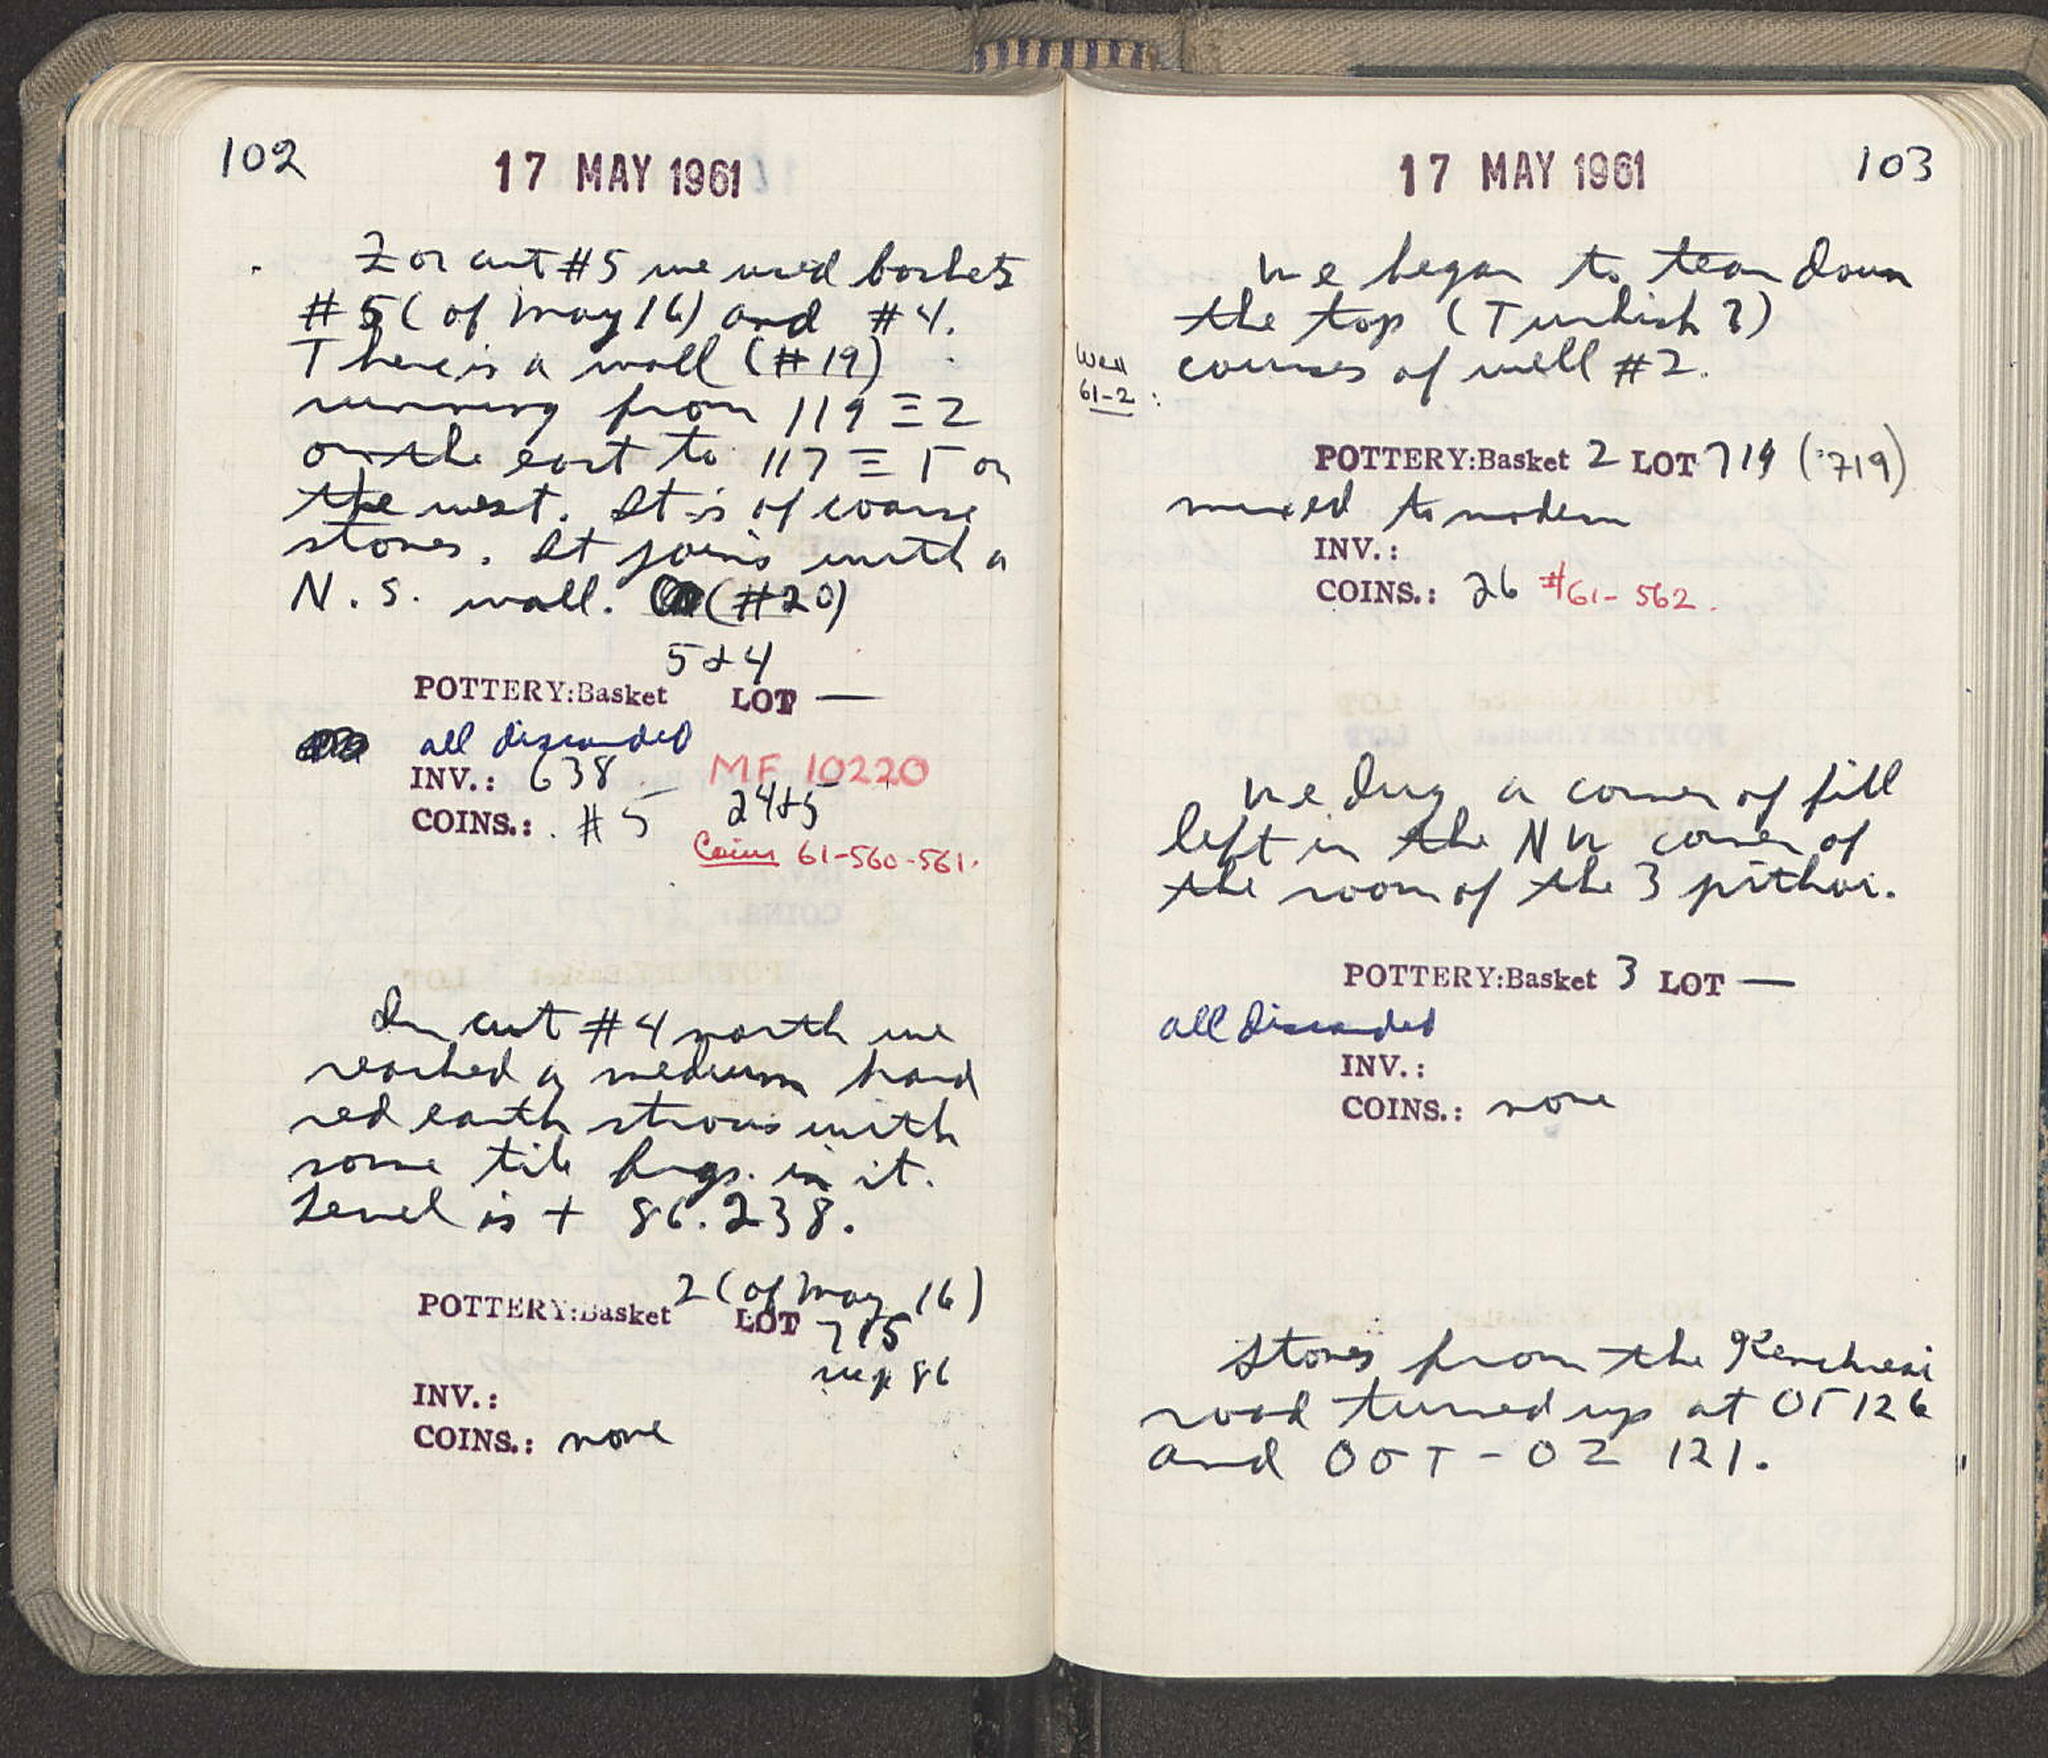 102
17 MAY 1961
For cut #5 we used baskets
#5 (of May 16) and #4.
There is a wall (#19)
running from 119 Ξ Z
on the east to 117 Ξ Γ on
the west. It is of coarse
stones. It joins with a
N.S. wall. (#20)
5+4
POTTERY:Basket LOT —
all discarded
INV.: 638 MF 10220
COINS.: #5 24+5
Coins 61-560-561.
In cut #4 north we
reached a medium hard
red earth strosis with
some tile frags. in it.
Level is + 86.238.
2 (of May 16)
POTTERY:Basket LOT 715
INV.:
COINS.: none
17 MAY 1961
103
We began to tear down
the top (Turkish?)
Well
61-2:
courses of well #2.
POTTERY:Basket 2 LOT 719 (719)
mixed to modern
INV.:
COINS.: 26 #61-562.
We dug a corner of fill
left in the NW corner of
the room of the 3 pithoi.
POTTERY:Basket 3 LOT —
all discarded
INV.:
COINS.: none
Stones from the Kenchreai
road turned up at ΟΓ 126
and ΟΣΤ - ΟΖ 121.